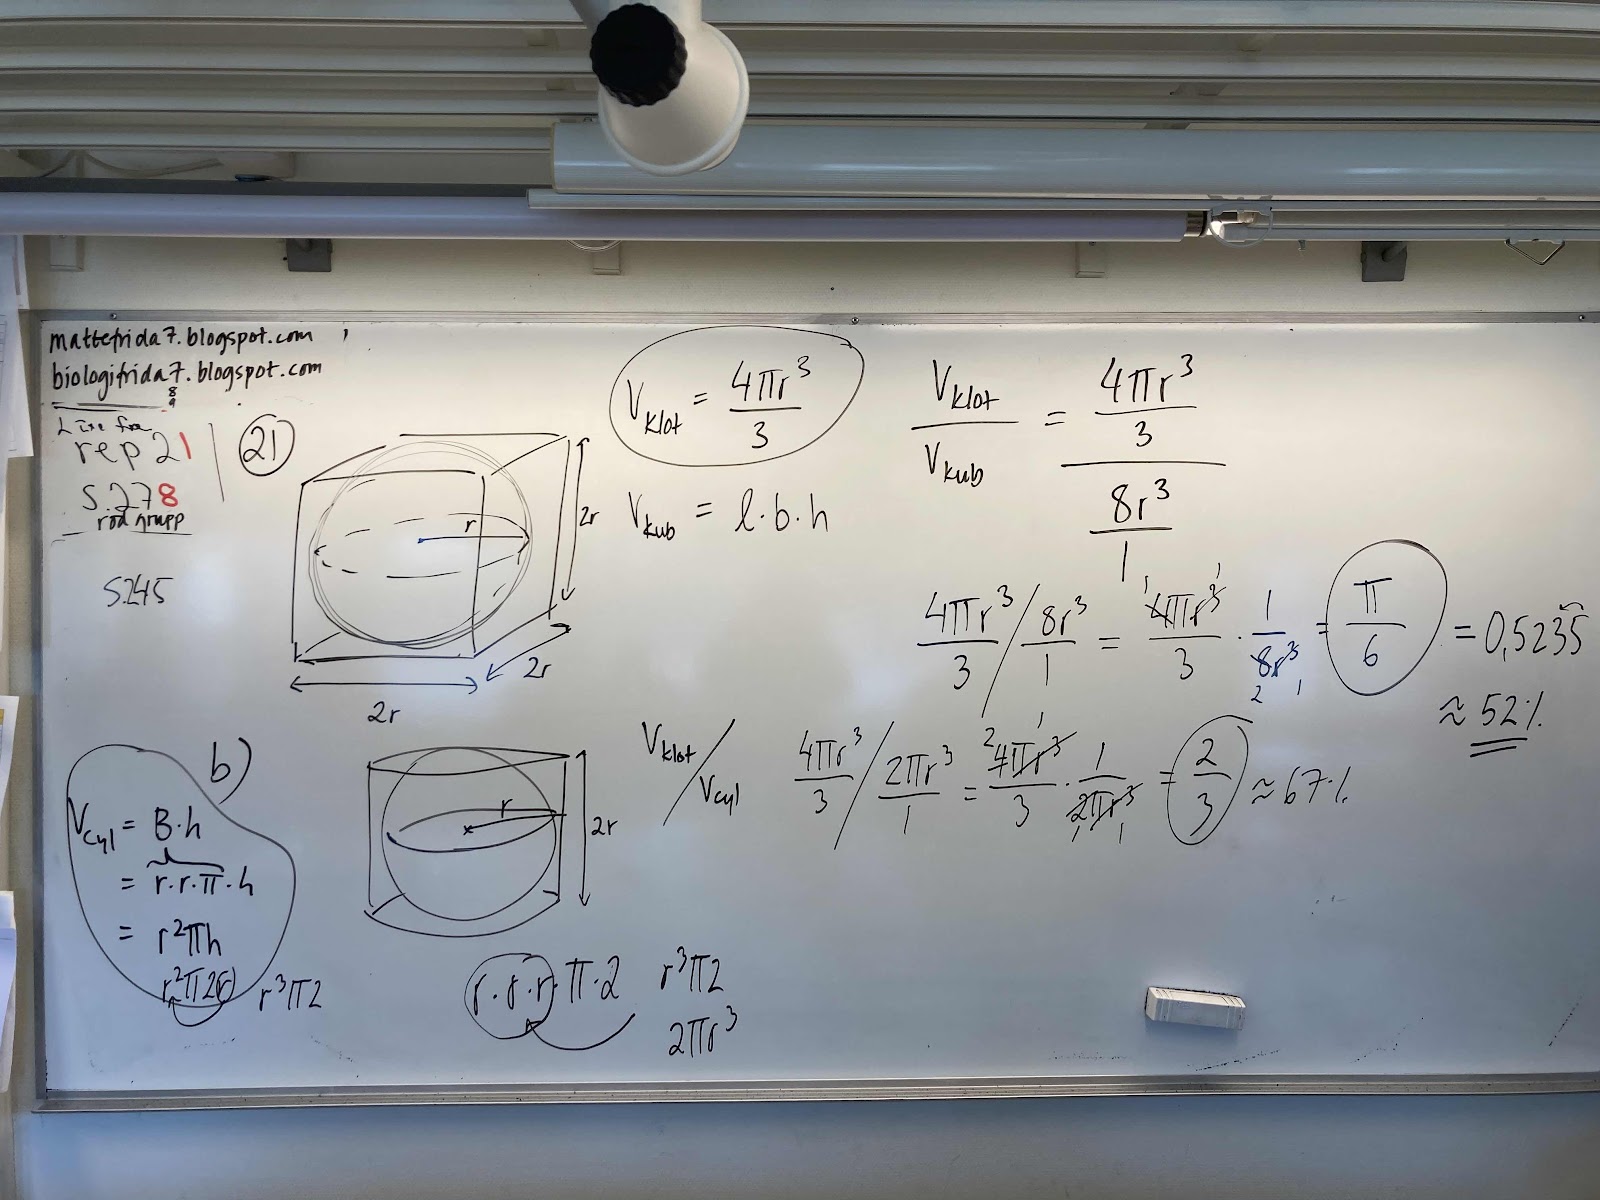 mattefrida7.blogspot.com
biologifrida7.blogspot.com
8
9
rep 21
S.278
röd grupp
S.245
21)
r
2r
2r
2r
V_klot = 4πr³/3
V_kub = l·b·h
V_klot/V_kub = (4πr³/3)/(8r³/1)
4πr³/3 / 8r³/1 = 4πr³/3 · 1/8r³ = π/6 = 0,5235
1 1
2 1
≈ 52%
b)
V_cyl = B·h
= r·r·π·h
= r²πh
r²π2(r) r³π2
r
2r
V_klot/V_cyl 4πr³/3 / 2πr³/1 = 4πr³/3 · 1/2πr³ = 2/3 ≈ 67%
2 1
1 1
r·r·r·π·2 r³π2
2πr³